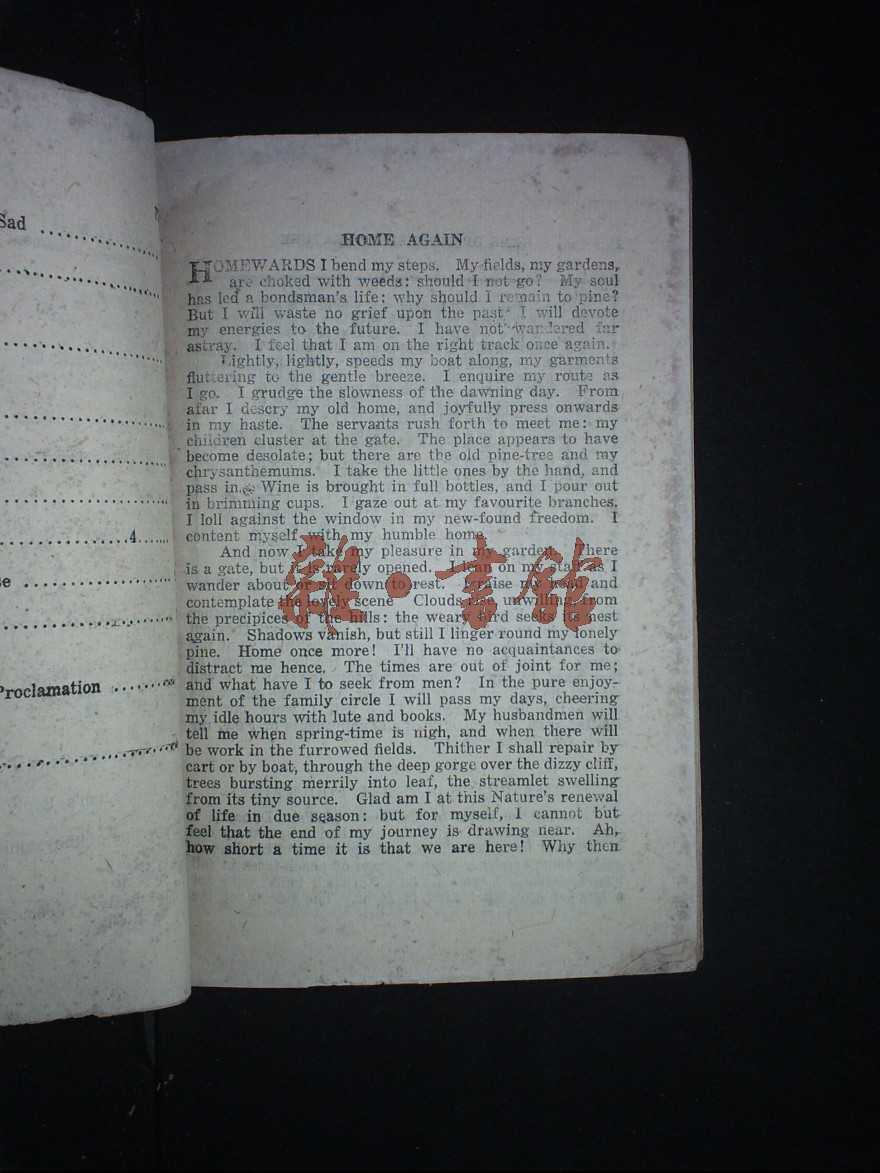 Sad ..............
4......
se ..............
Proclamation ........
HOME AGAIN
HOMEWARDS I bend my steps. My fields, my gardens,
are choked with weeds: should I not go? My soul
has led a bondsman's life: why should I remain to pine?
But I will waste no grief upon the past I will devote
my energies to the future. I have not wandered far
astray. I feel that I am on the right track once again.
Lightly, lightly, speeds my boat along, my garments
fluttering to the gentle breeze. I enquire my route as
I go. I grudge the slowness of the dawning day. From
afar I descry my old home, and joyfully press onwards
in my haste. The servants rush forth to meet me: my
children cluster at the gate. The place appears to have
become desolate; but there are the old pine-tree and my
chrysanthemums. I take the little ones by the hand, and
pass in. Wine is brought in full bottles, and I pour out
in brimming cups. I gaze out at my favourite branches.
I loll against the window in my new-found freedom. I
content myself with my humble home.
And now I take my pleasure in my garden. There
is a gate, but it is rarely opened. I lean on my staff as I
wander about or sit down to rest. I raise my head and
contemplate the lovely scene Clouds rise, unwilling, from
the precipices of the hills: the weary bird seeks its nest
again. Shadows vanish, but still I linger round my lonely
pine. Home once more! I'll have no acquaintances to
distract me hence. The times are out of joint for me;
and what have I to seek from men? In the pure enjoy-
ment of the family circle I will pass my days, cheering
my idle hours with lute and books. My husbandmen will
tell me when spring-time is nigh, and when there will
be work in the furrowed fields. Thither I shall repair by
cart or by boat, through the deep gorge over the dizzy cliff,
trees bursting merrily into leaf, the streamlet swelling
from its tiny source. Glad am I at this Nature's renewal
of life in due season: but for myself, I cannot but
feel that the end of my journey is drawing near. Ah,
how short a time it is that we are here! Why then
雜·書館